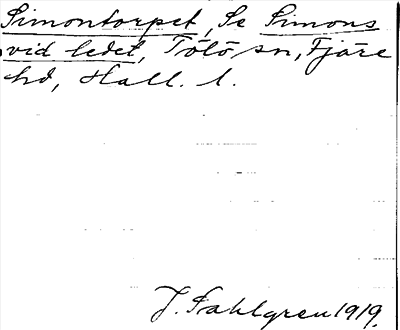 Simontorpet, Se Simons
vid ledet, Tölö sn, Fjäre
hd, Hall. l.
J. Sahlgren 1919.